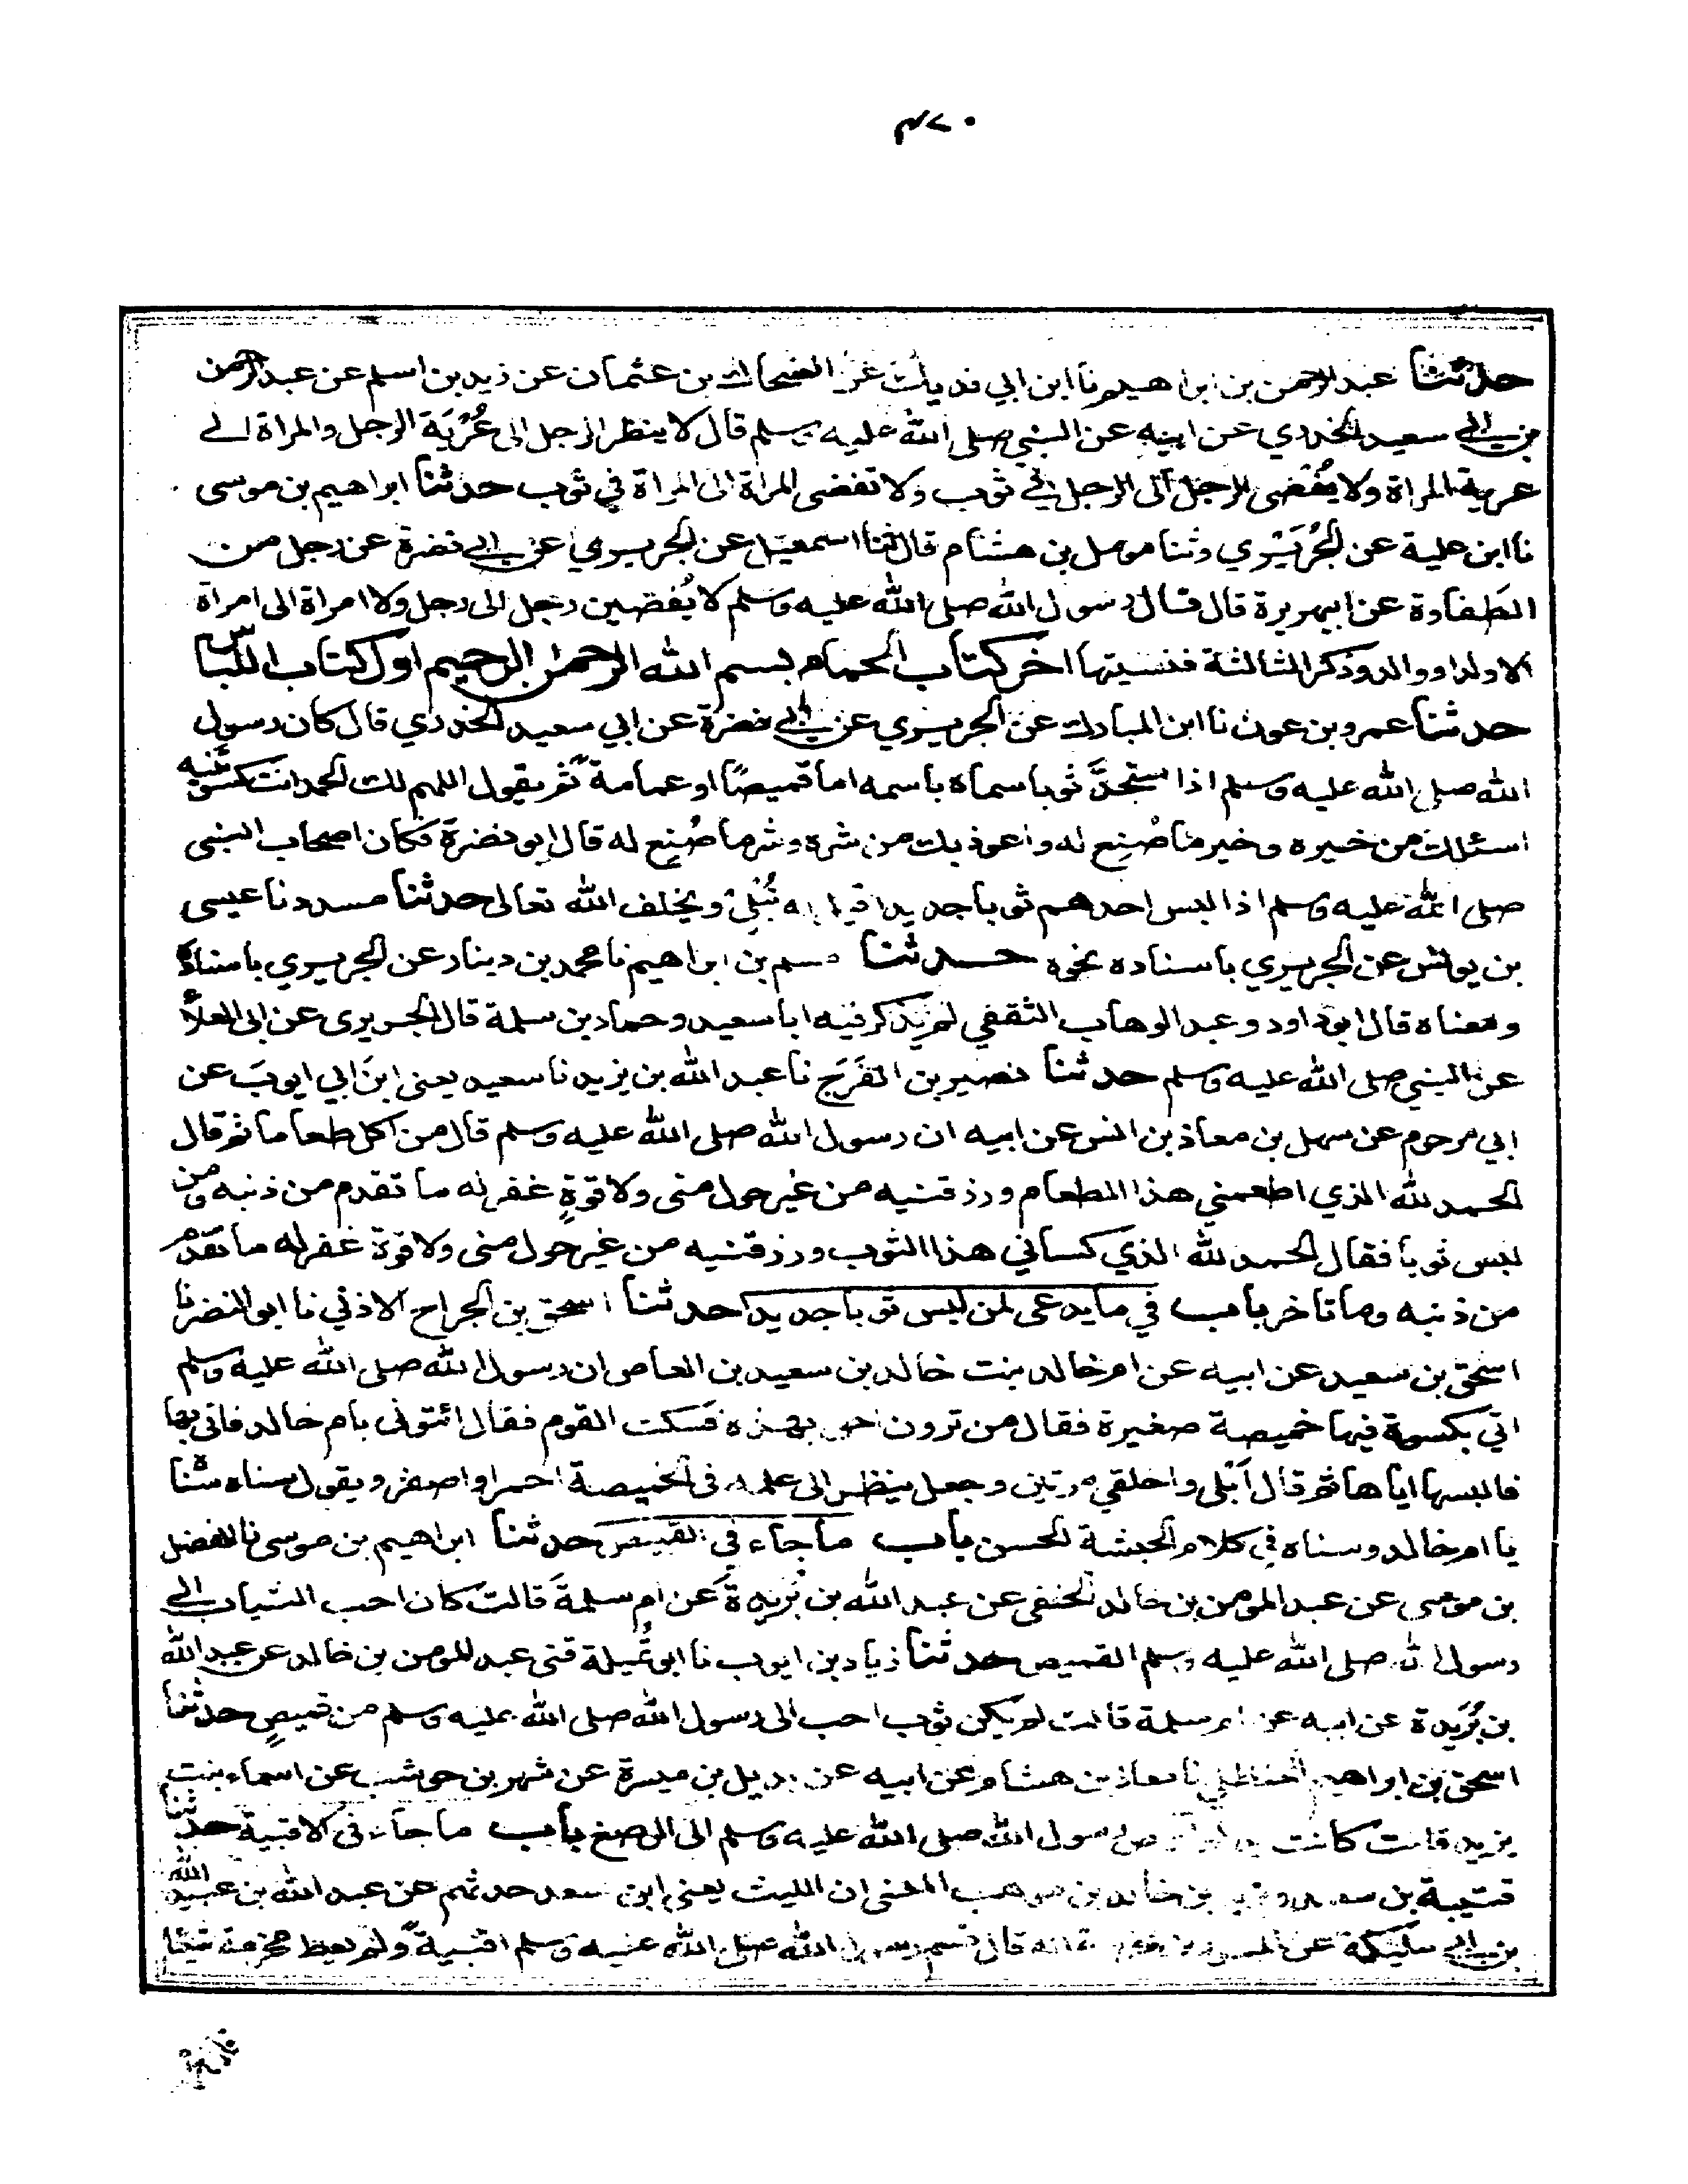 ٣٧٠
حدثنا عبد الرحمن بن ابراهيم نا ابن ابي فديك عن الضحاك بن عثمان عن زيد بن اسلم عن عبد الرحمن
بن ابي سعيد الخدري عن ابيه عن النبي صلى الله عليه وسلم قال لا ينظر الرجل الى عُرْيَة الرجل والمراة الى
عرية المراة ولا يُفْضى الرجل الى الرجل في ثوب ولا تفضى المراة الى المراة في ثوب حدثنا ابراهيم بن موسى
نا ابن علية عن الجُرَيْرِي وثنا مومل بن هشام قال ثنا اسمعيل عن الجريري عن ابي نضرة عن رجل من
الطفاوة عن ابيهريرة قال قال رسول الله صلى الله عليه وسلم لا يُفضين رجل الى رجل ولا امراة الى امراة
الا ولدا ووالد وذكر الثالثة فنسيتها اخر كتاب الحمام بسم الله الرحمن الرحيم اول كتاب اللباس
حدثنا عمرو بن عون نا ابن المبارك عن الجريري عن ابي نضرة عن ابي سعيد الخدري قال كان رسول
الله صلى الله عليه وسلم اذا استجدَّ ثوبا سماه باسمه اما قميصًا او عمامة ثم يقول اللهم لك الحمد انت كسوتنيه
اسئلك من خيره وخير ما صُنِع له واعوذ بك من شره وشر ما صُنِع له قال ابو نضرة فكان اصحاب النبى
صلى الله عليه وسلم اذا لبس احدهم ثوبا جديدا قيل له تُبْلِي ويخلف الله تعالى حدثنا مسدد نا عيسى
بن يونس عن الجريري باسناده نحوه حدثنا مسلم بن ابراهيم نا محمد بن دينار عن الجريري باسناده
ومعناه قال ابو داود وعبد الوهاب الثقفي لم يذكر فيه ابا سعيد وحماد بن سلمة قال الجريرى عن ابى العلاء
عن النبي صلى الله عليه وسلم حدثنا نصير بن الفَرَج نا عبد الله بن يزيد نا سعيد يعنى ابن ابي ايوب عن
ابي مرحوم عن سهل بن معاذ بن انس عن ابيه ان رسول الله صلى الله عليه وسلم قال من اكل طعاما ثم قال
الحمد لله الذي اطعمني هذا الطعام ورزقنيه من غير حول منى ولا قوةٍ غفر له ما تقدم من ذنبه ومن
لبس ثوبا فقال الحمد لله الذي كساني هذا الثوب ورزقنيه من غير حول منى ولا قوة غفر له ما تقدم
من ذنبه وما تاخر باب في ما يدعى لمن لبس ثوبا جديدا حدثنا اسحق بن الجراح الاذني نا ابو النضر نا
اسحق بن سعيد عن ابيه عن ام خالد بنت خالد بن سعيد بن العاص ان رسول الله صلى الله عليه وسلم
اتي بكسوة فيها خميصة صغيرة فقال من ترون احق بهذه فسكت القوم فقال ائتونى بام خالد فاتى بها
فالبسها اياها ثم قال اَبْلى واخلقي مرتين وجعل ينظر الى علم في الخميصة احمر او اصفر ويقول سناه سناه
يا ام خالد وسناه في كلام الحبشة الحسن باب ما جاء في القميص حدثنا ابراهيم بن موسى نا الفضل
بن موسى عن عبد المومن بن خالد الحنفى عن عبد الله بن بُرَيدة عن ام سلمة قالت كان احب الثياب الى
رسول الله صلى الله عليه وسلم القميص حدثنا زياد بن ايوب نا ابو تُمَيلة قثنى عبد المومن بن خالد عن عبد الله
بن بُرَيدة عن ابيه عن ام سلمة قالت لم يكن ثوب احب الى رسول الله صلى الله عليه وسلم من قميصٍ حدثنا
اسحق بن ابراهيم الحنظلي نا معاذ بن هشام عن ابيه عن بديل بن ميسرة عن شهر بن حوشب عن اسماء بنت
يزيد قالت كانت يد رسول الله صلى الله عليه وسلم الى الرصغ باب ما جاء في الاقبية حدثنا
قتيبة بن سعيد ويزيد بن خالد بن موهب المعنى ان الليث يعنى ابن سعد حدثهم عن عبد الله بن عبيد الله
بن ابي مليكة عن المسور بن مخرمة انه قال قسم رسول الله صلى الله عليه وسلم اقبيةً ولم يعط مخرمة شيئا